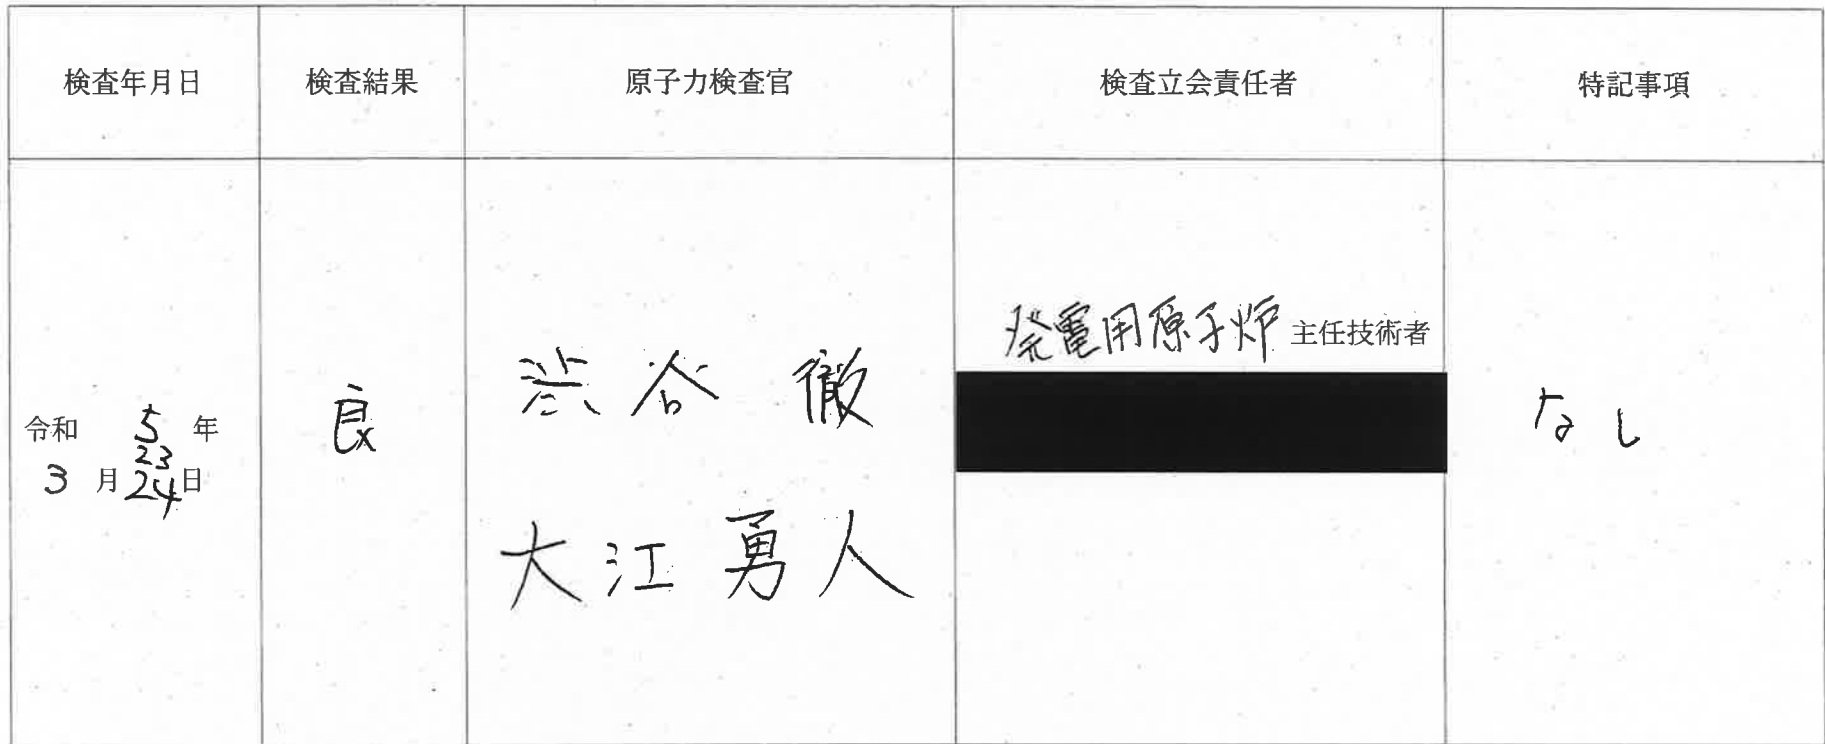 検査年月日 検査結果 原子力検査官 検査立会責任者 特記事項
令和 5 年
23
3 月 24 日
良
渋谷 徹
大江 勇人
発電用原子炉 主任技術者
なし